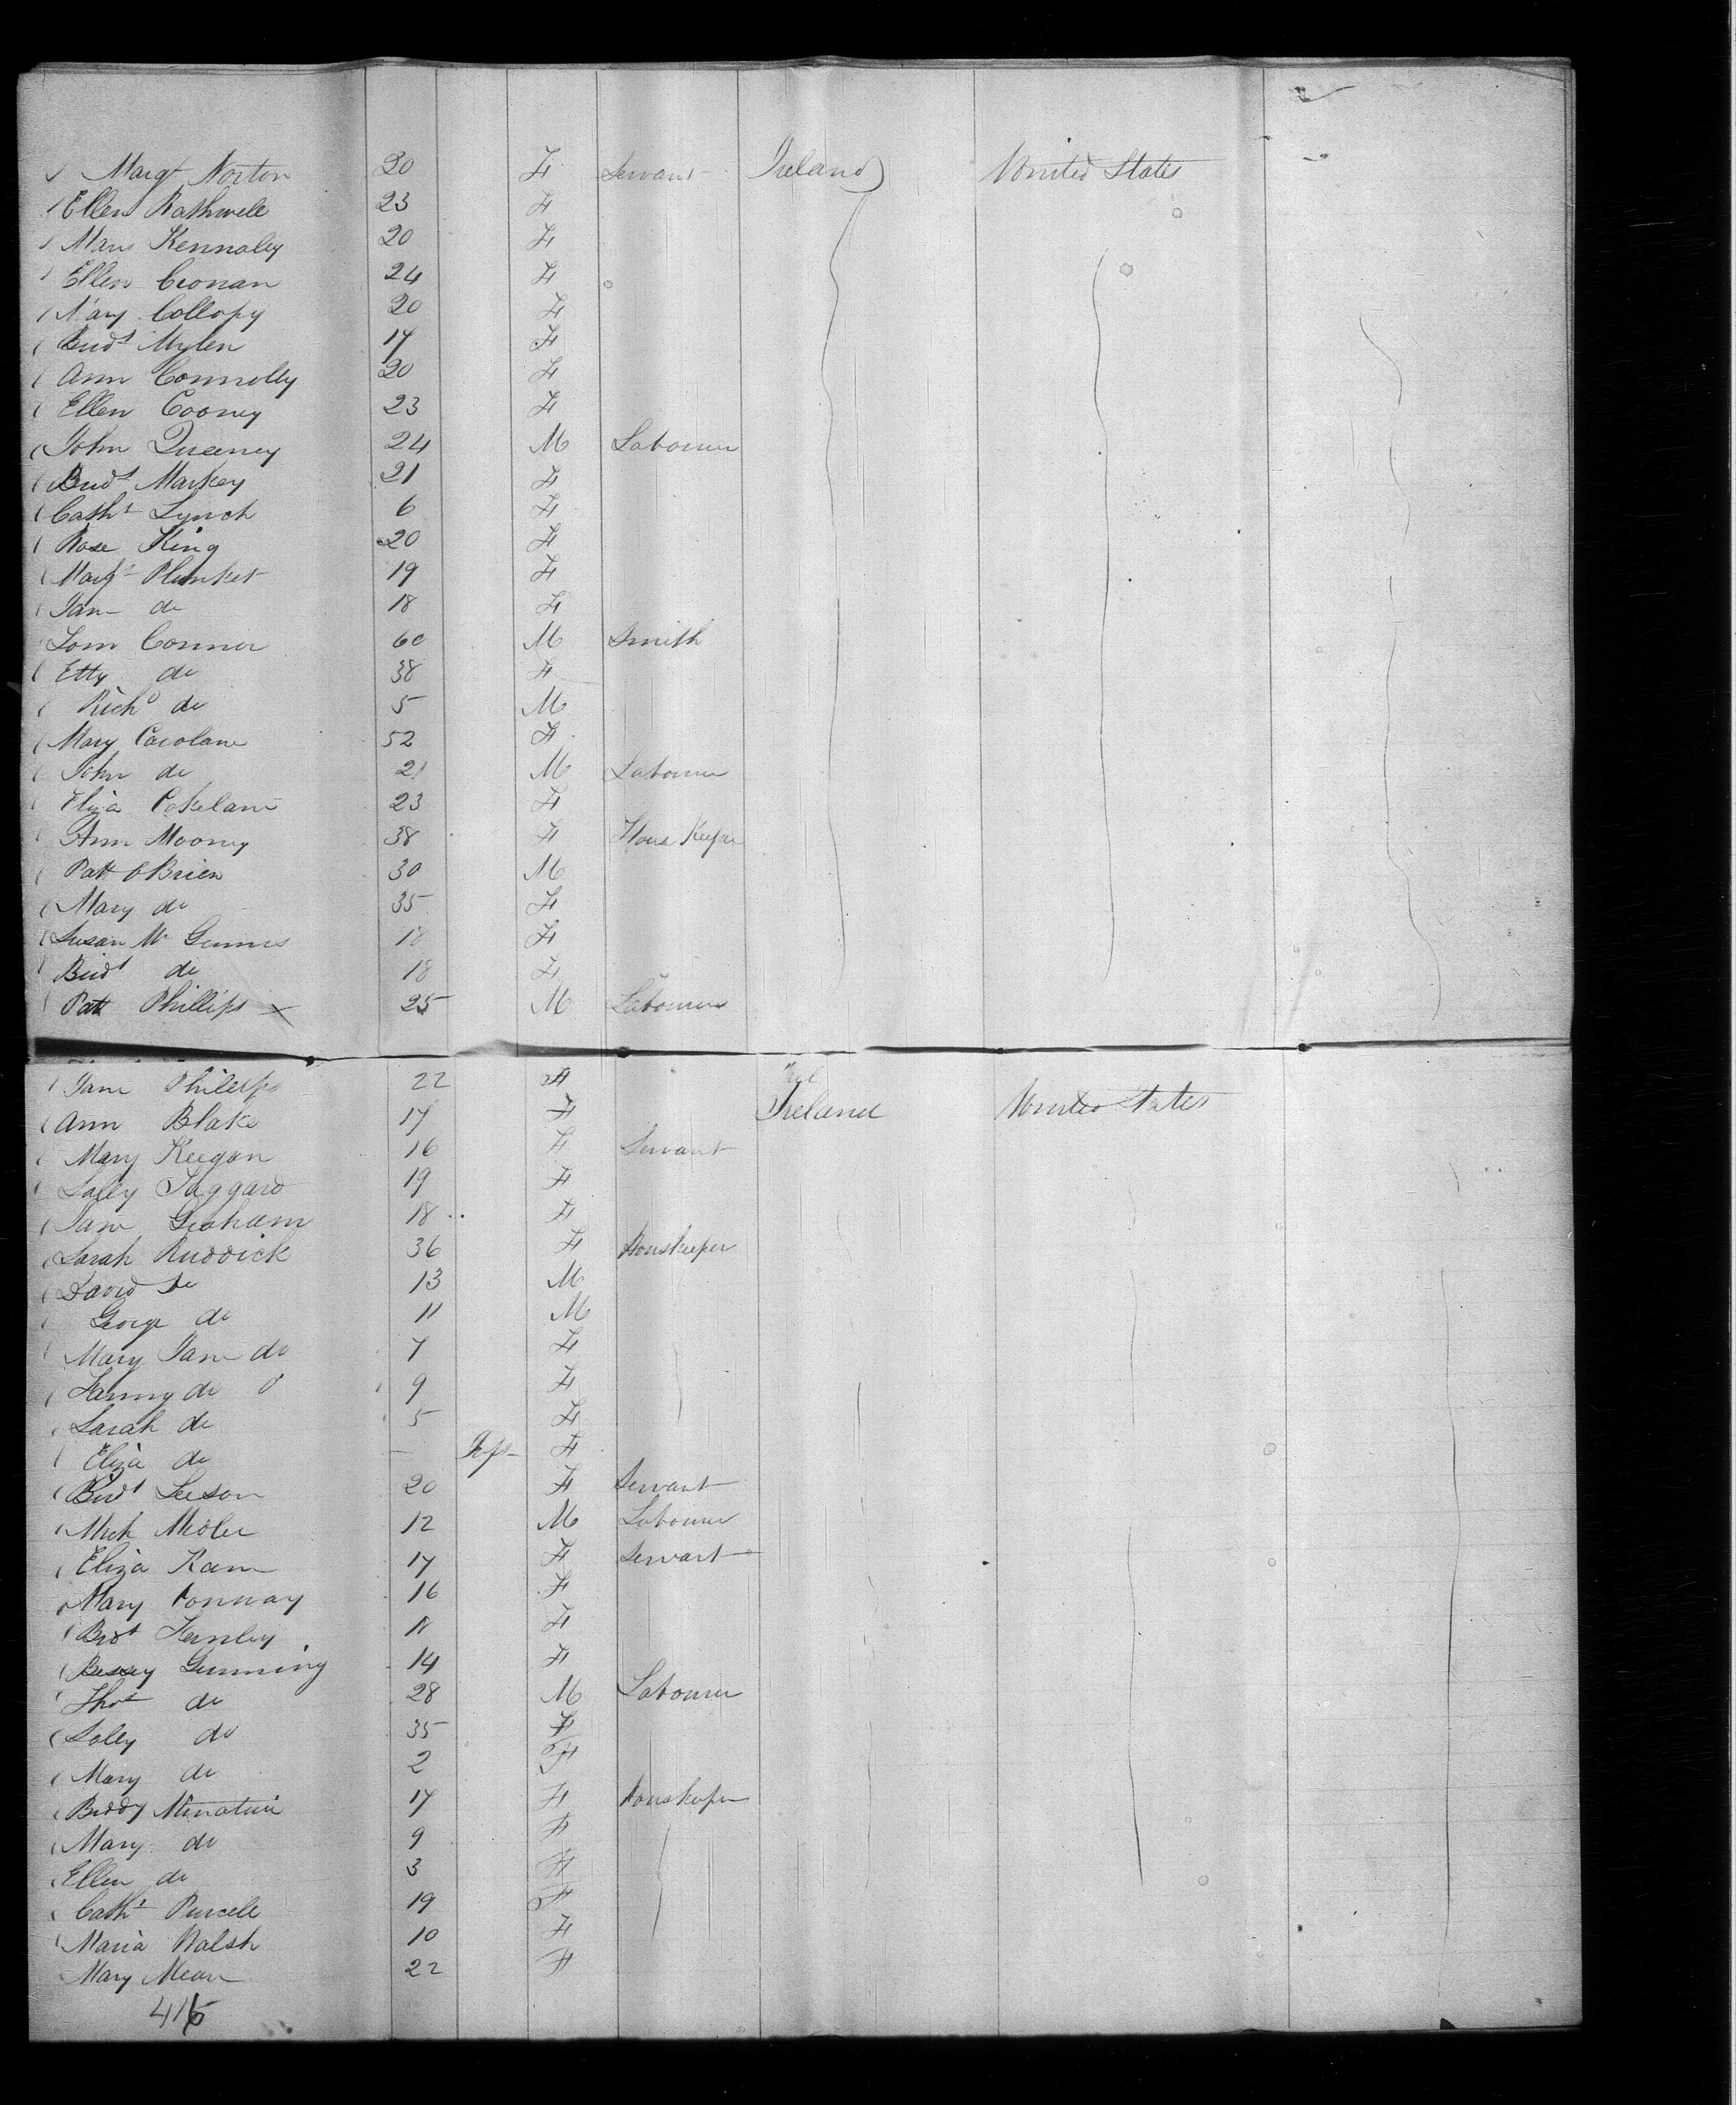 Margt Norton 20 F Servant Ireland United States
Ellen Rathwell 23 F
Mary Kennaley 20 F
Ellen Cronan 24 F
Mary Collopy 20 F
Bridt Mylen 17 F
Ann Connolly 20 F
Ellen Cooney 23 F
John Queeney 24 M Labourer
Bridt Markey 21 F
Catht Lynch 6 F
Rose King 20 F
Margt Plunket 19 F
Jane do 18 F
Conner 60 M Smith
Etty do 38 F
Richd do 5 M
Mary Carolane 52 F
John do 21 M Labourer
Eliza 23 F
Ann Mooney 38 F House Keeper
Patt OBrien 30 M
Mary do 35 F
Susan Mc Ginnis 18 F
Bridt do 18 F
Patt Phillips x 25 M Labourer
Jane Phillips 22 F
Ann Blake 17 F Ireland United States
Mary Keegan 16 F Servant
Sally Taggard 19 F
Jane Graham 18 F
Sarah Ruddick 36 F Houskeeper
David do 13 M
George do 11 M
Mary Jane do 7 F
Fanny do 9 F
Sarah do 5 F
Eliza do — Inft F
Bridt Leeson 20 F Servant
Mich Medler 12 M Labourer
Eliza Kane 17 F Servant
Mary Conway 16 F
Bridt 18 F
Bessey Gunning 14 F
Thos do 28 M Labourer
Sally do 35 F
Mary do 2 F
Biddy 17 F Houskeeper
Mary do 9 F
Ellen do 3 F
Catht Purcell 19 F
Maria Walsh 10 F
Mary Mean 22 F